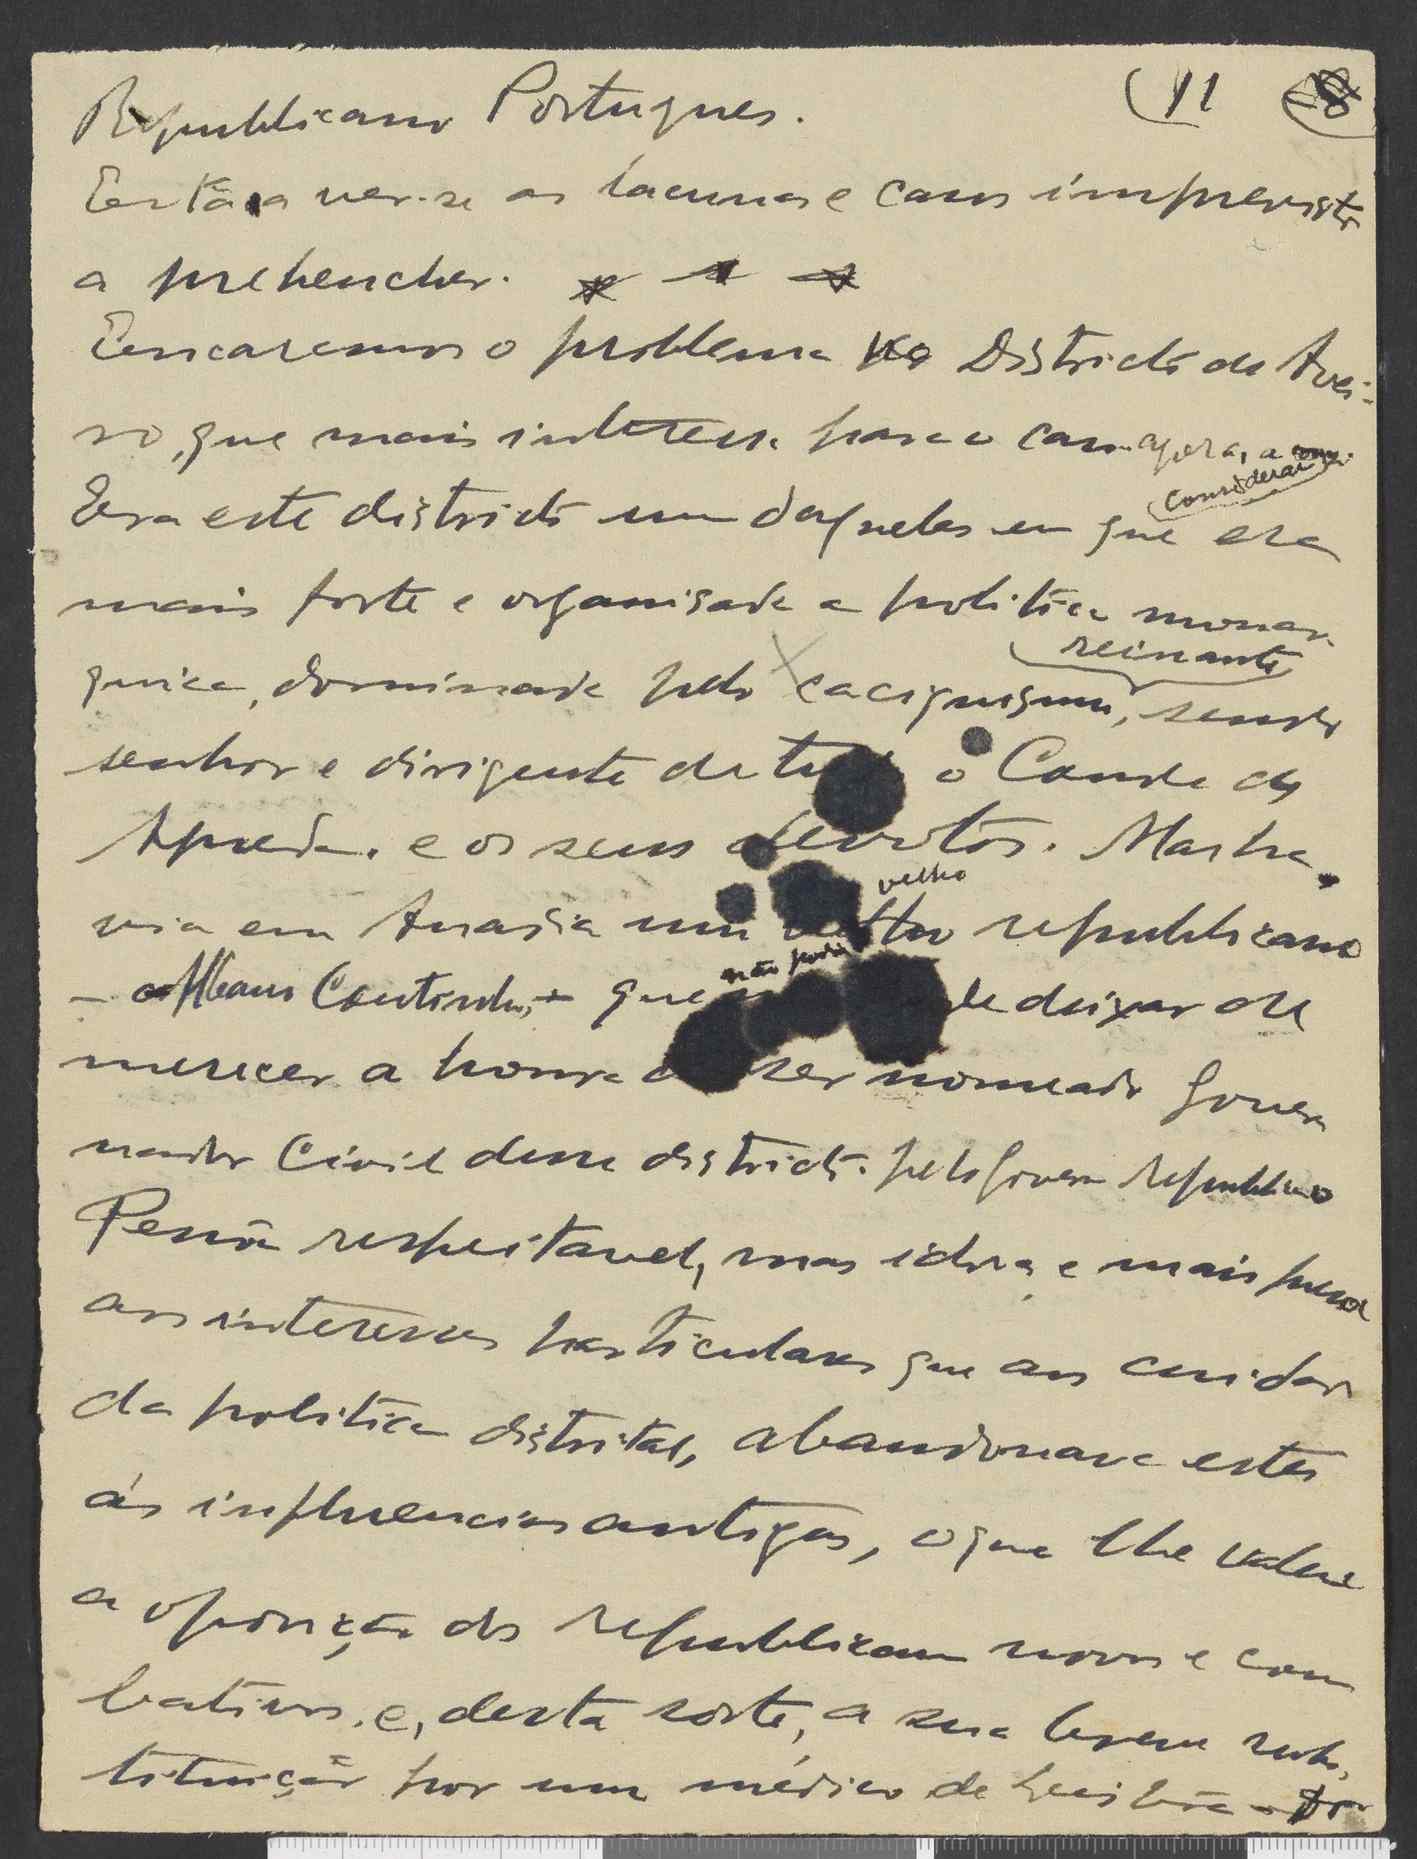 (11
Republicano Portugues.
Está a ver-se as lacunas e casos imprevistos
a prehencher.
Encaremos o problema no Districto de Avei-
ro, que mais interessa para o caso agora, a
considerar
Era este districto um daqueles em que era
mais forte e organisada a politica monar-
reinante
quica, dominada pelo caciquismo, sendo
senhor e dirigente de tudo o Conde de
Agueda. e os seus devotos. Mas ha-
velho
via em Anadia um velho republicano
não podia
- Albano Coutinho, - que de deixar de
merecer a honra de ser nomeado Gover-
nador Civil desse districto pelo Governo Republicano
Pessôa respeitavel, mas idosa, e mais presa
aos interesses particulares que ao cuidar
da politica distrital, abandonava estes
ás influencias antigas, o que lhe valeu
a oposição dos republicanos novos e com
bativos. e, desta sorte, a sua breve subs-
tituição por um médico de Lisbôa -